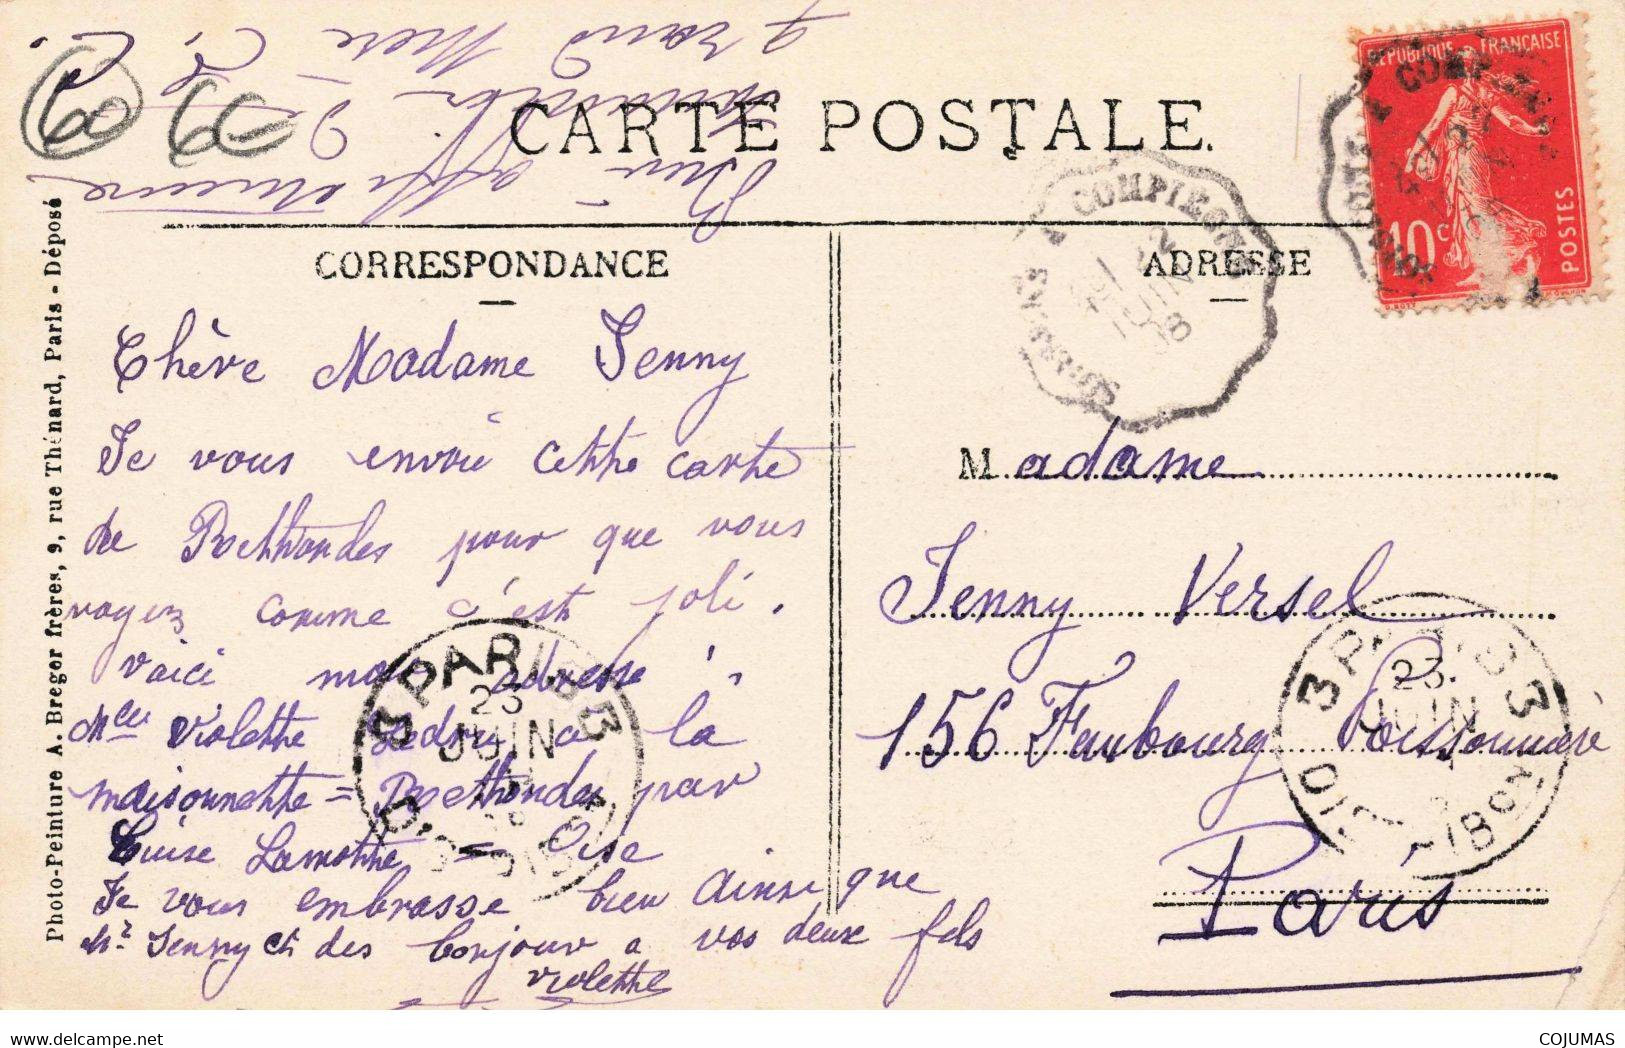 CARTE POSTALE.
CORRESPONDANCE
ADRESSE
Photo-Peinture A. Breger frères, 9, rue Thénard, Paris - Déposé
60
REPUBLIQUE FRANÇAISE
10c
POSTES
COMPIEGNE
21
JUIN
08
Chère Madame Jenny
Je vous envoie cette carte
de Rethondes pour que vous
voyez comme c'est joli.
voici mon adresse :
Mlle Violette Ledru a la
maisonnette = Rethondes par
Cuise Lamotte = Oise
Je vous embrasse bien ainsi que
Mr Jenny et des bonjour a vos deux fils
violette
Madame
Jenny Versel
156 Faubourg Poissonnière
Paris
3 PARIS 3
23
JUIN
3 PARIS 3
23
JUIN
grand Mère
COJUMAS